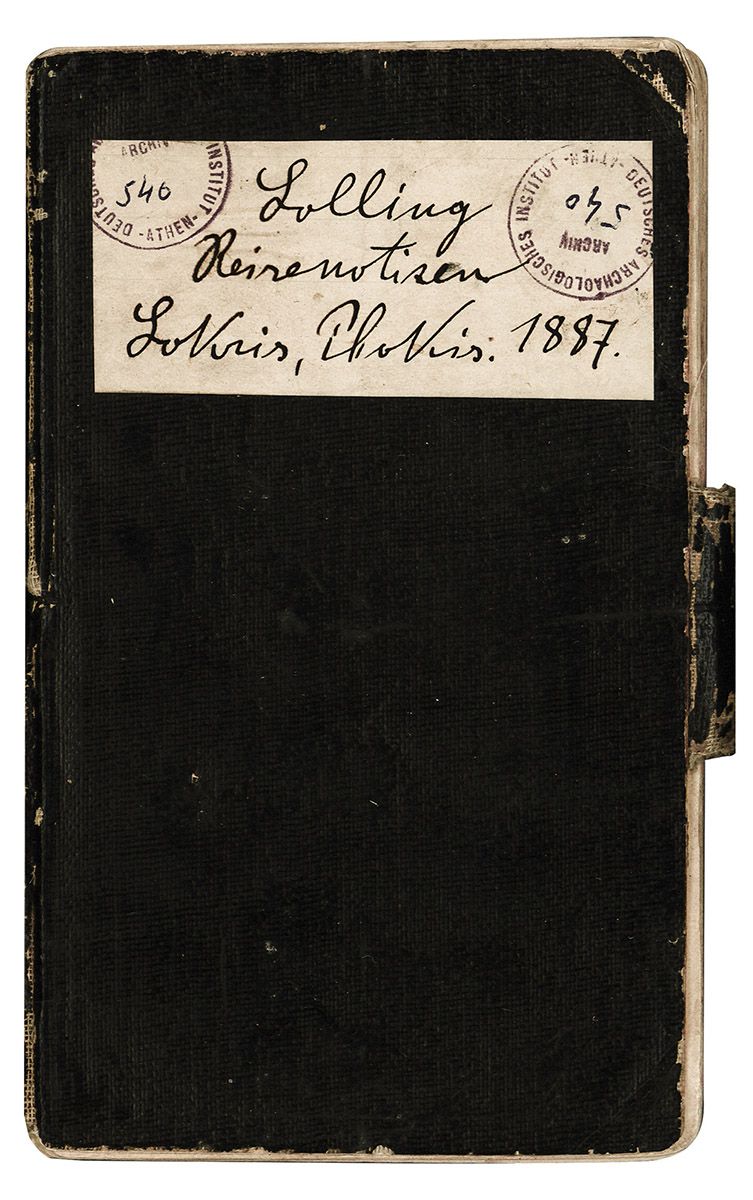 Lolling
Reisenotisen
Lokris, Phokis. 1887.
DEUTSCHES INSTITUT -ATHEN-
ARCHIV
540
DEUTSCHES ARCHAOLOGISCHES INSTITUT -ATHEN-
ARCHIV
540